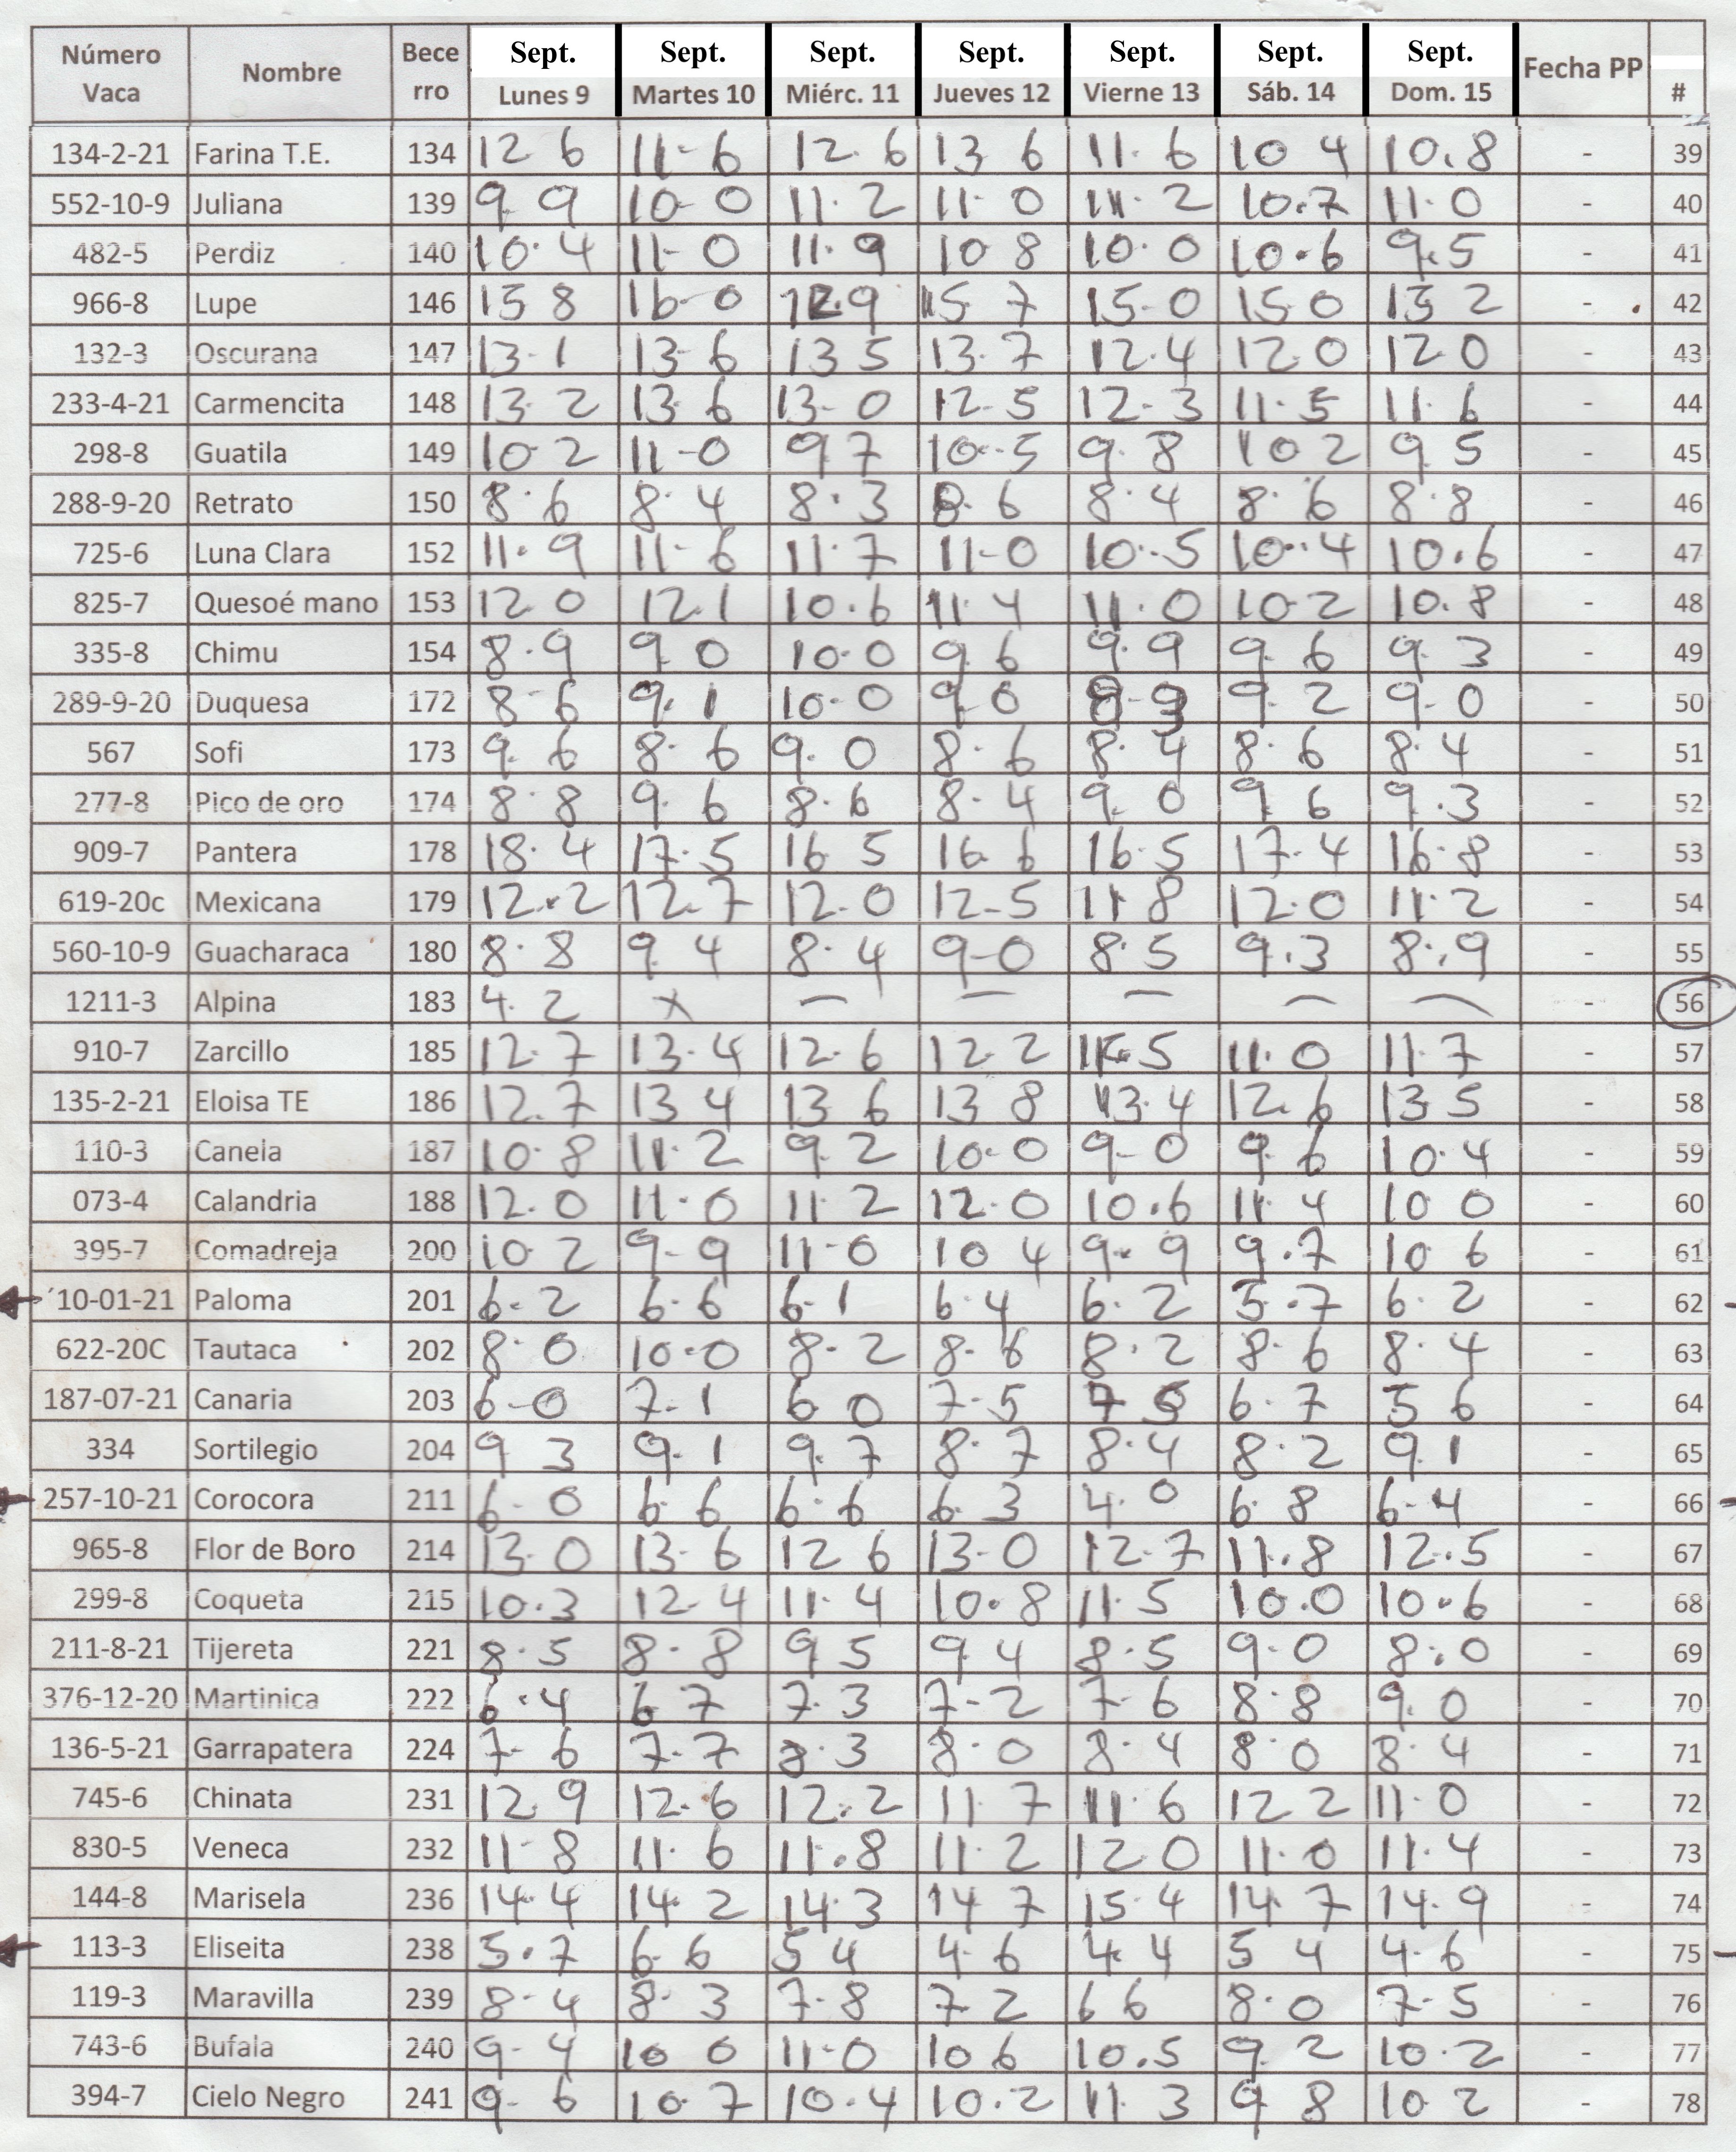 Número Vaca Nombre Bece rro Sept. Lunes 9 Sept. Martes 10 Sept. Miérc. 11 Sept. Jueves 12 Sept. Vierne 13 Sept. Sáb. 14 Sept. Dom. 15 Fecha PP #
134-2-21 Farina T.E. 134 12 6 11-6 12.6 13 6 11.6 10 4 10.8 - 39
552-10-9 Juliana 139 9.9 10-0 11.2 11.0 11.2 10.7 11.0 - 40
482-5 Perdiz 140 10.4 11-0 11.9 10 8 10.0 10.6 9.5 - 41
966-8 Lupe 146 15 8 16-0 15 7 15-0 15.0 - 42
132-3 Oscurana 147 13-1 13-6 13 5 13.7 12.4 12.0 12 0 - 43
233-4-21 Carmencita 148 13.2 13.6 13-0 12-5 12-3 11.5 11.6 - 44
298-8 Guatila 149 10.2 11-0 9.7 10-5 9.8 10 2 9.5 - 45
288-9-20 Retrato 150 8.6 8.4 8.3 8.6 8.4 8.6 8.8 - 46
725-6 Luna Clara 152 11.9 11-6 11.7 11-0 10.5 10.4 10.6 - 47
825-7 Quesoé mano 153 12.0 12.1 10.6 11.4 11.0 10.2 10.8 - 48
335-8 Chimu 154 8.9 9.0 10.0 9.6 9.9 9.6 9.3 - 49
289-9-20 Duquesa 172 8-6 9.1 10.0 9.0 9.2 9-0 - 50
567 Sofi 173 9.6 8.6 9.0 8.6 8.4 8.6 8.4 - 51
277-8 Pico de oro 174 8.8 9.6 8.6 8.4 9.0 9.6 9.3 - 52
909-7 Pantera 178 18.4 17.5 16 5 16.6 16.5 17.4 16.8 - 53
619-20c Mexicana 179 12.2 12.7 12.0 12-5 11 8 12.0 11.2 - 54
560-10-9 Guacharaca 180 8.8 9.4 8.4 9-0 8.5 9.3 8.9 - 55
1211-3 Alpina 183 4.2 x - - - - - - 56
910-7 Zarcillo 185 12.7 13.4 12.6 12.2 11.5 11.0 11.7 - 57
135-2-21 Eloisa TE 186 12.7 13 4 13 6 13 8 13.4 12.6 13 5 - 58
110-3 Canela 187 10.8 11.2 9.2 10.0 9-0 9.6 10.4 - 59
073-4 Calandria 188 12.0 11.0 11.2 12.0 10.6 11.4 10 0 - 60
395-7 Comadreja 200 10.2 9-9 11-0 10 4 9.9 9.7 10 6 - 61
10-01-21 Paloma 201 6.2 6.6 6-1 6.4 6.2 5.7 6.2 - 62
622-20C Tautaca 202 8.0 10.0 8.2 8.6 8.2 8.6 8.4 - 63
187-07-21 Canaria 203 6-0 7.1 6 0 7.5 6.7 5 6 - 64
334 Sortilegio 204 9 3 9.1 9.7 8.7 8.4 8.2 9.1 - 65
257-10-21 Corocora 211 6-0 6.6 6.6 6.3 4.0 6 8 6-4 - 66
965-8 Flor de Boro 214 13.0 13-6 12 6 13-0 12.7 11.8 12.5 - 67
299-8 Coqueta 215 10.3 12.4 11.4 10.8 11.5 10.0 10.6 - 68
211-8-21 Tijereta 221 8.5 8.8 9 5 9.4 8.5 9.0 8.0 - 69
376-12-20 Martinica 222 6.4 6 7 7.3 7-2 7-6 8.8 9.0 - 70
136-5-21 Garrapatera 224 7-6 7.7 8.3 8.0 8.4 8.0 8.4 - 71
745-6 Chinata 231 12.9 12.6 12.2 11.7 11.6 12 2 11.0 - 72
830-5 Veneca 232 11.8 11.6 11.8 11.2 12 0 11.0 11.4 - 73
144-8 Marisela 236 14.4 14.2 14.3 14 7 15.4 14.7 14.9 - 74
113-3 Eliseita 238 5.7 6.6 5 4 4.6 4.4 5 4 4.6 - 75
119-3 Maravilla 239 8-4 8.3 7-8 7.2 6 6 8.0 7-5 - 76
743-6 Bufala 240 9-4 10 0 11-0 10 6 10.5 9.2 10.2 - 77
394-7 Cielo Negro 241 9-6 10.7 10.4 10.2 11.3 9 8 10 2 - 78